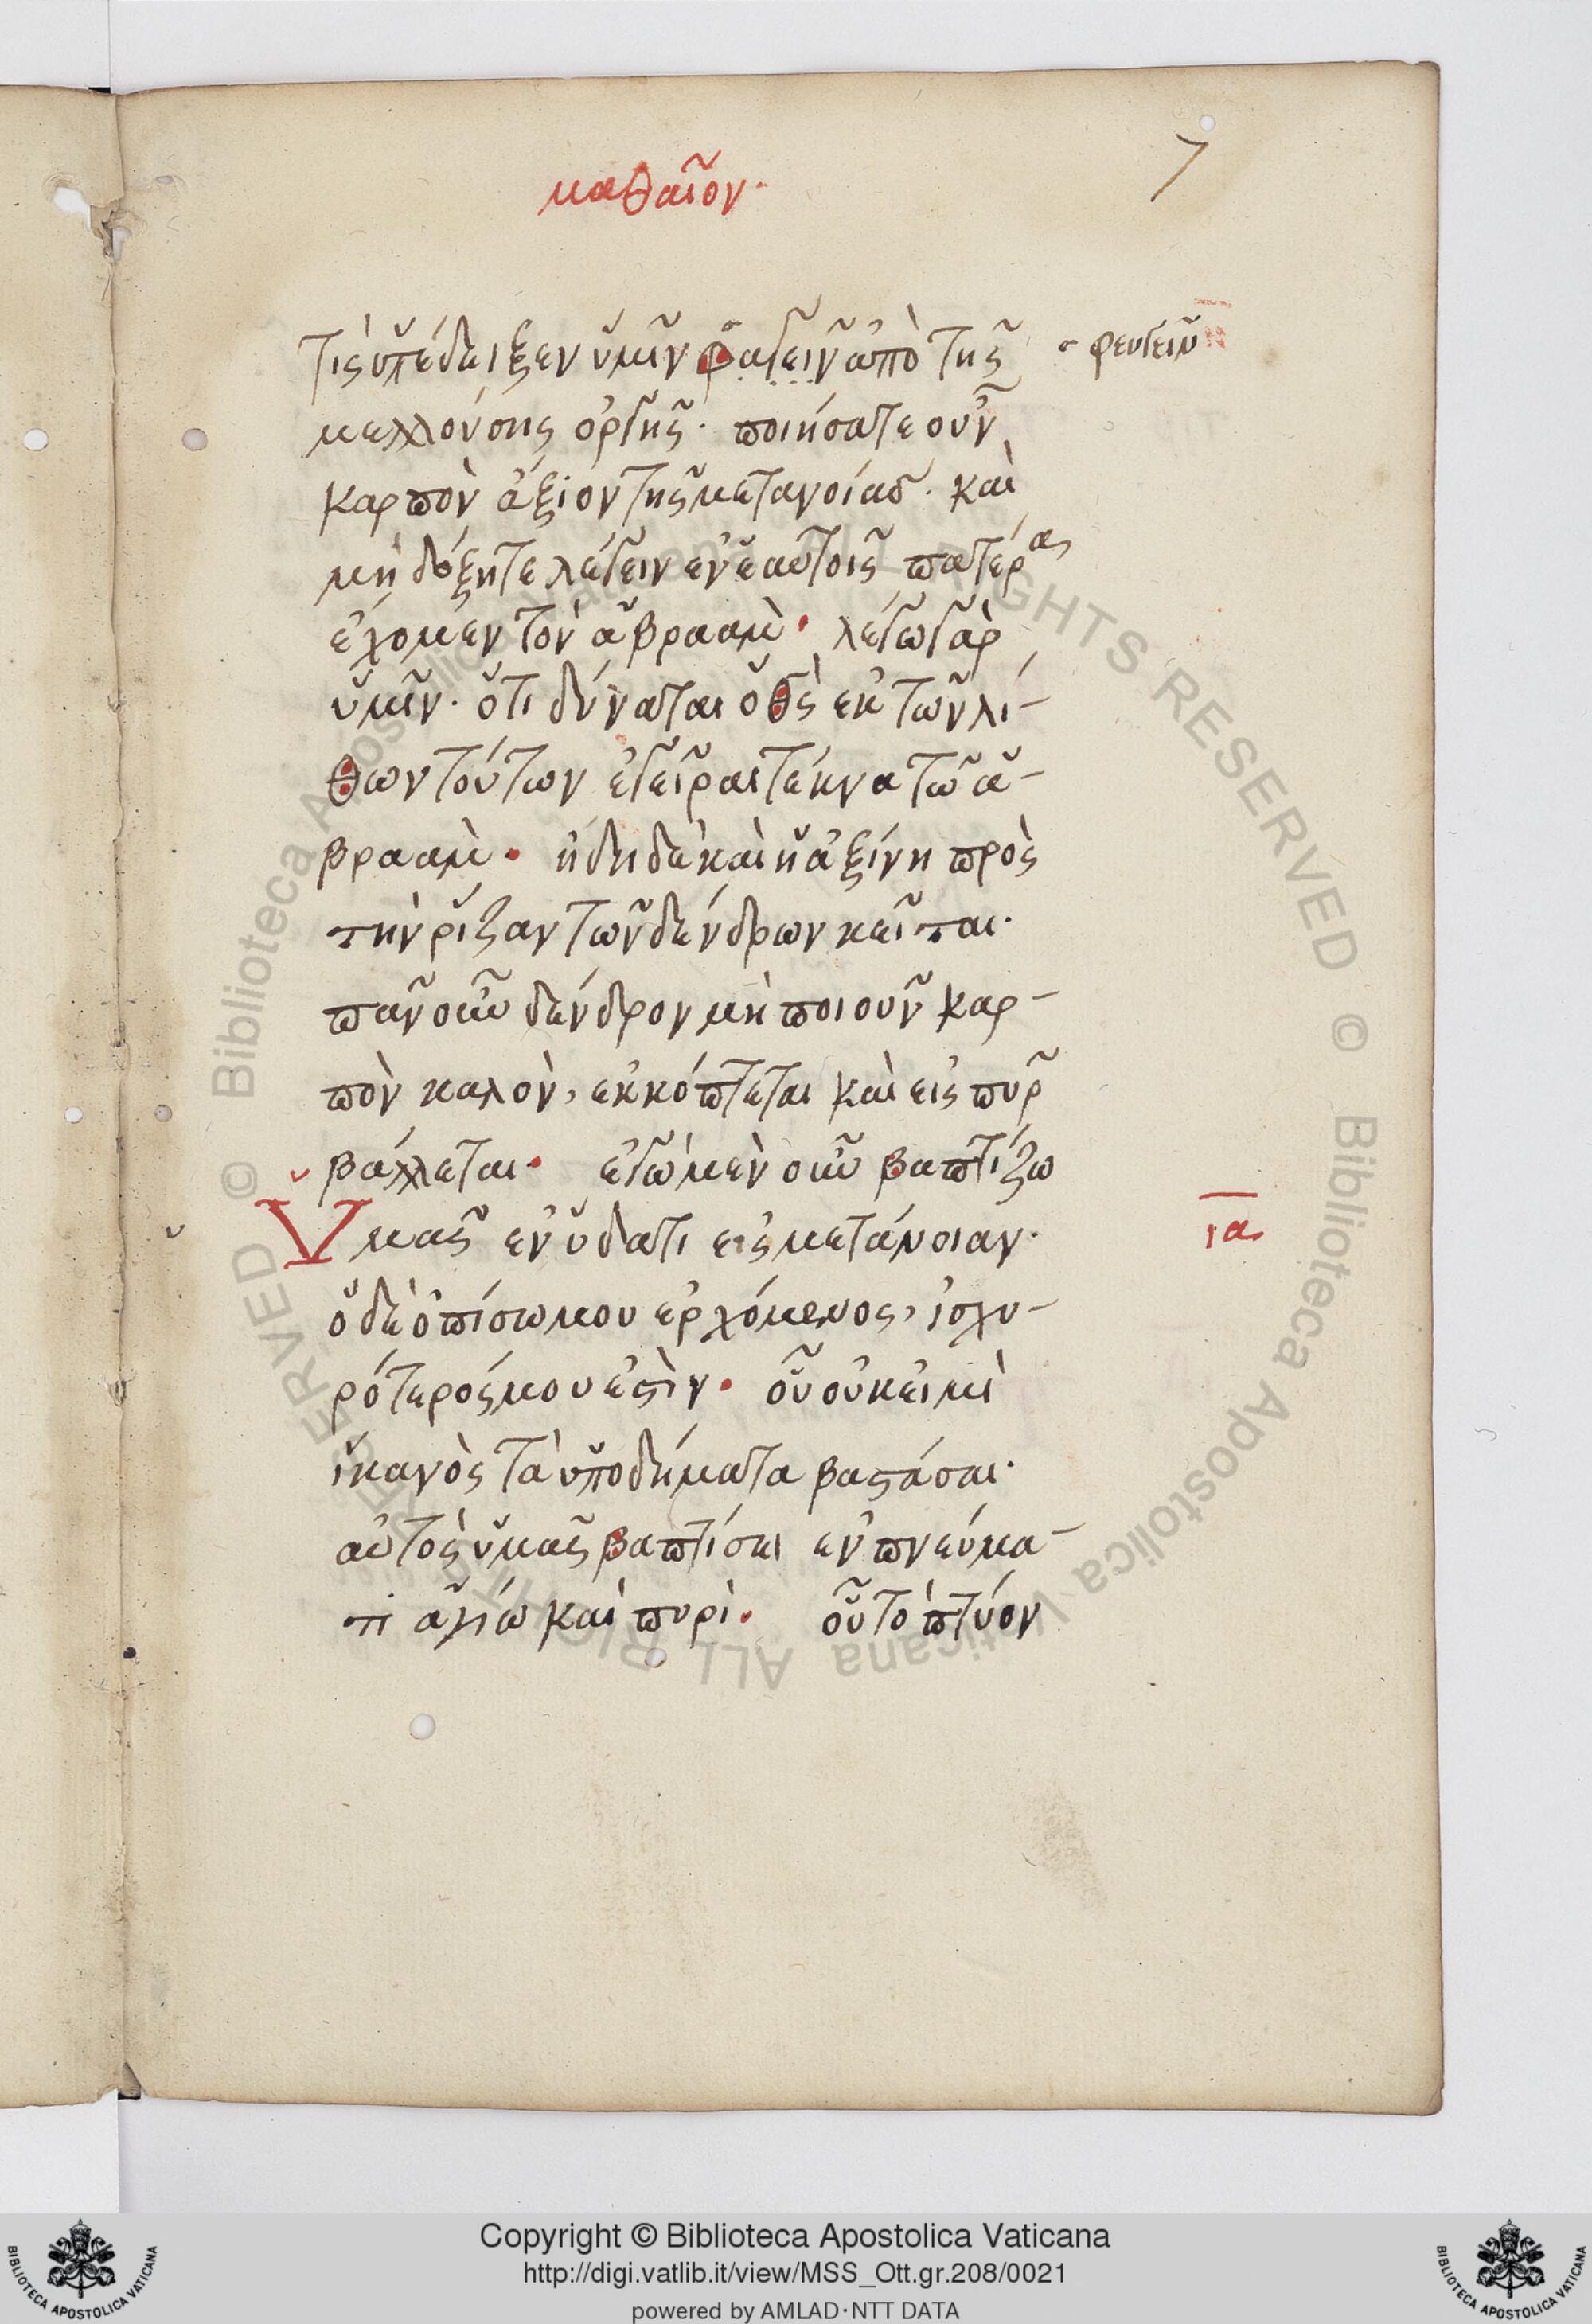 μαθαῖον·
7
τίς ὑπέδειξεν ὑμῖν φαγεῖν ἀπὸ τῆς
φευγεῖν
μελλούσης ὀργῆς· ποιήσατε οὖν
καρπὸν ἄξιον τῆς μετανοίας· καὶ
μὴ δόξητε λέγειν ἐν ἑαυτοῖς πατέρας
ἔχομεν τὸν ἁβραάμ· λέγω γὰρ
ὑμῖν· ὅτι δύναται ὁ θς ἐκ τῶν λί-
θων τούτων ἐγεῖραι τέκνα τῶ ἁ-
βραάμ· ἤδη δὲ καὶ ἡ ἀξίνη πρὸς
τὴν ῥίζαν τῶν δένδρων κεῖται·
πᾶν οὖν δένδρον μὴ ποιοῦν καρ-
πὸν καλὸν, ἐκκόπτεται καὶ εἰς πῦρ
βάλλεται· ἐγὼ μὲν οὖν βαπτίζω
Ὑμᾶς ἐν ὕδατι εἰς μετάνοιαν·
ια
ὁ δὲ ὀπίσω μου ἐρχόμενος, ἰσχυ-
ρότερός μου ἐστὶν· οὗ οὐκ εἰμὶ
ἱκανὸς τὰ ὑποδήματα βαστάσαι·
αὐτὸς ὑμᾶς βαπτίσει ἐν πνεύμα-
τι ἁγίω καὶ πυρὶ· οὗ τὸ πτύον
© Biblioteca Apostolica Vaticana ALL RIGHTS RESERVED © Biblioteca Apostolica Vaticana ALL RIGHTS RESERVED
Copyright © Biblioteca Apostolica Vaticana
http://digi.vatlib.it/view/MSS_Ott.gr.208/0021
powered by AMLAD·NTT DATA
BIBLIOTECA APOSTOLICA VATICANA
BIBLIOTECA APOSTOLICA VATICANA